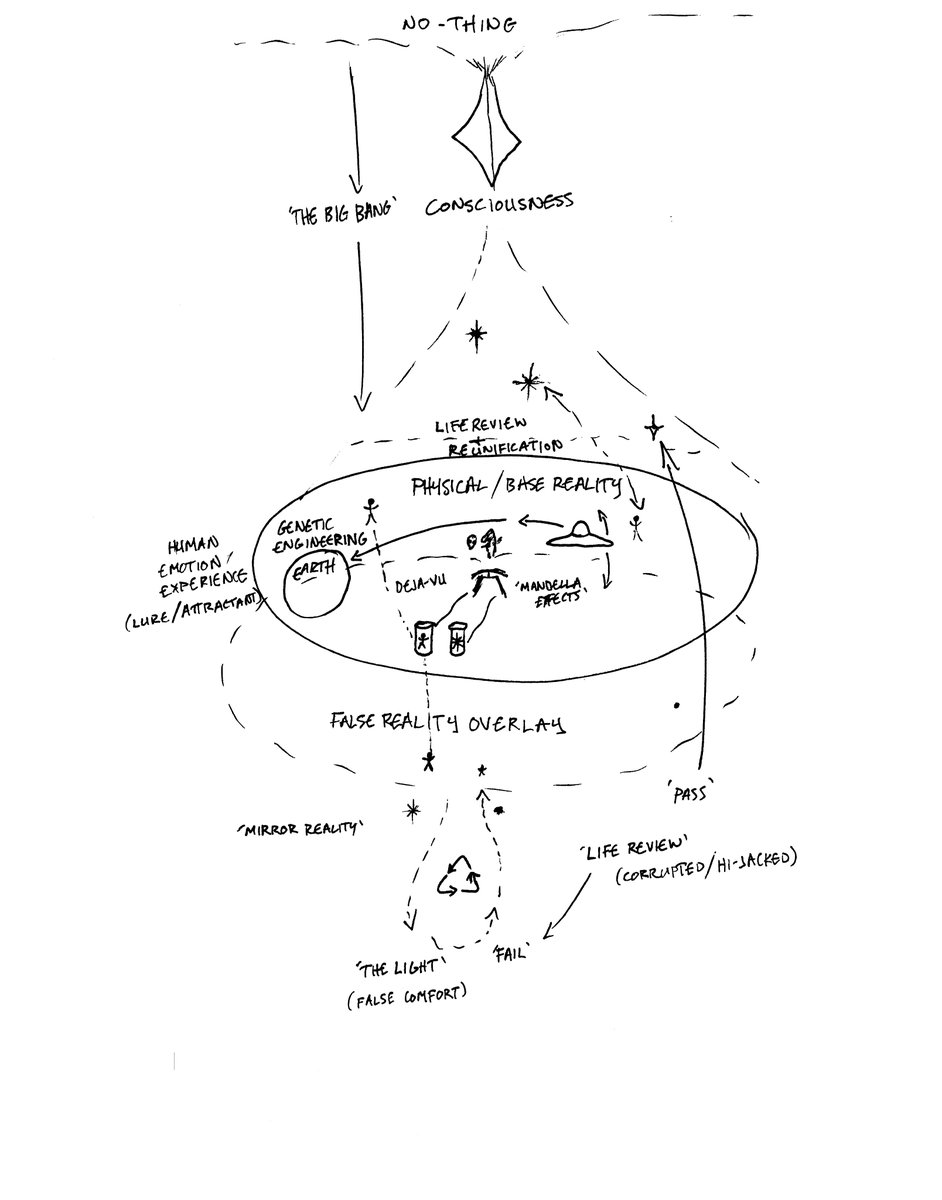 NO-THING
'THE BIG BANG'
CONSCIOUSNESS
LIFE REVIEW
+
REUNIFICATION
PHYSICAL/BASE REALITY
GENETIC
ENGINEERING
EARTH
HUMAN
EMOTION/
EXPERIENCE
(LURE/ATTRACTANT)
DEJA-VU
'MANDELLA
EFFECTS'
FALSE REALITY OVERLAY
'PASS'
'MIRROR REALITY'
'LIFE REVIEW'
(CORRUPTED/HI-JACKED)
'FAIL'
'THE LIGHT'
(FALSE COMFORT)